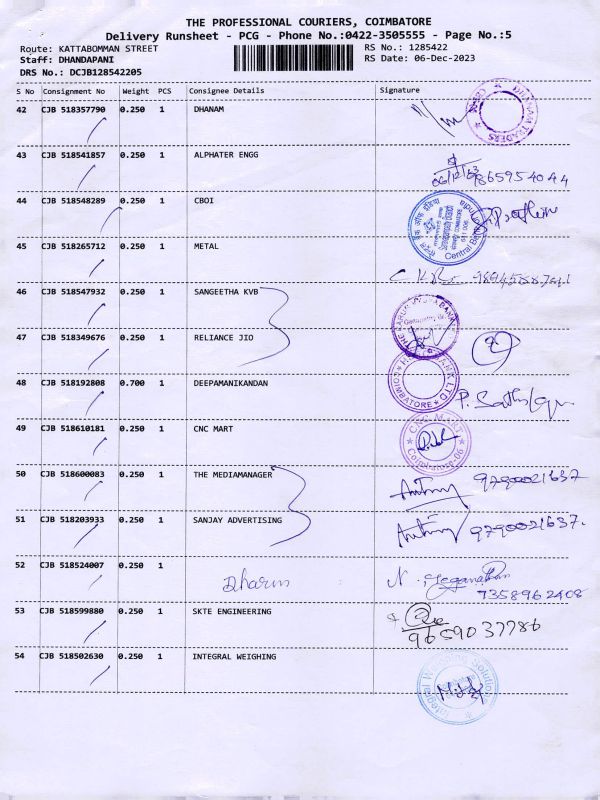 THE PROFESSIONAL COURIERS, COIMBATORE
Delivery Runsheet - PCG - Phone No.:0422-3505555 - Page No.:5
Route: KATTABOMMAN STREET RS No.: 1285422
Staff: DHANDAPANI RS Date: 06-Dec-2023
DRS No.: DCJB128542205
S No Consignment No Weight PCS Consignee Details Signature
42 CJB 518357790 0.250 1 DHANAM
DHANAM TRADERS
43 CJB 518541857 0.250 1 ALPHATER ENGG
9865954044
44 CJB 518548289 0.250 1 CBOI
Central Bank
45 CJB 518265712 0.250 1 METAL
46 CJB 518547932 0.250 1 SANGEETHA KVB
47 CJB 518349676 0.250 1 RELIANCE JIO
48 CJB 518192808 0.700 1 DEEPAMANIKANDAN
BANK LTD
COIMBATORE
49 CJB 518610181 0.250 1 CNC MART
CNC MART
Coimbatore-06
50 CJB 518600083 0.250 1 THE MEDIAMANAGER
Antony 9790021637
51 CJB 518203933 0.250 1 SANJAY ADVERTISING
Antony 9790021637.
52 CJB 518524007 0.250 1
Dharun N. Yeganathan
7358962408
53 CJB 518599880 0.250 1 SKTE ENGINEERING
9659037786
54 CJB 518502630 0.250 1 INTEGRAL WEIGHING
Integral Weighing Solution